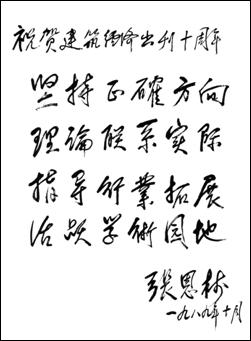 祝贺建筑经济出刊十周年
坚持正確方向
理論联系实际
指导行業拓展
活跃学術园地
張恩树
一九八九年十月